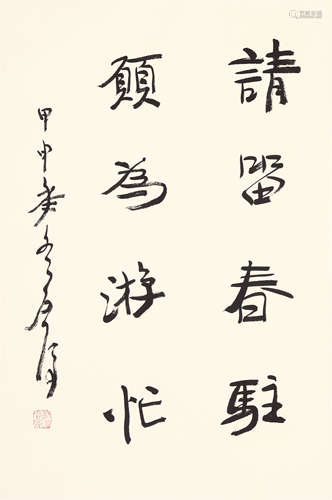 請留春駐
願為游忙
甲申